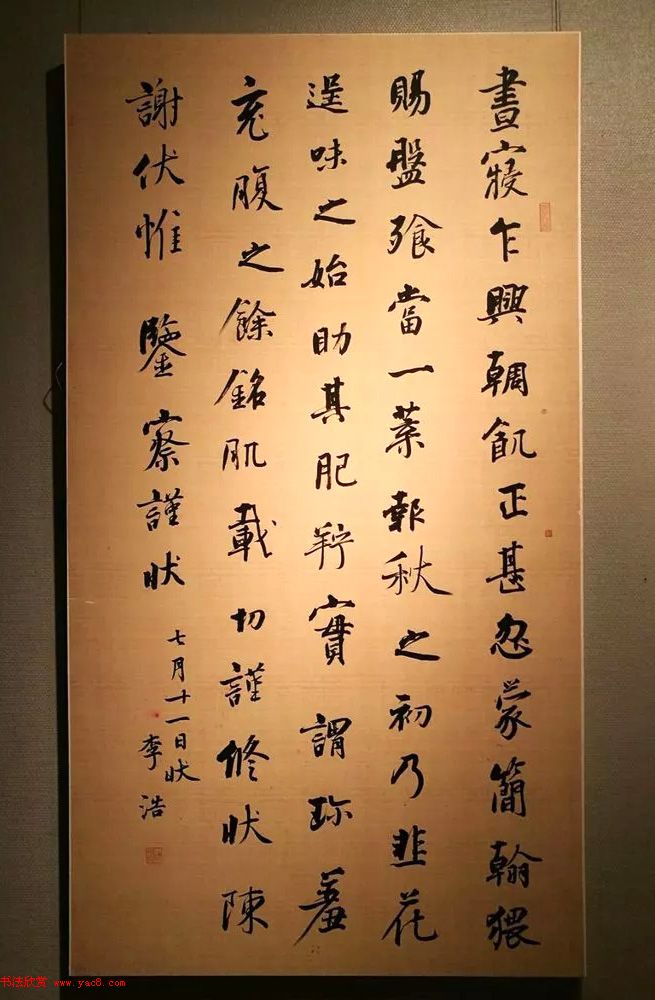 晝寢乍興輖飢正甚忽蒙簡翰猥
賜盤飧當一葉報秋之初乃韭花
逞味之始助其肥羜實謂珎羞
充腹之餘銘肌載切謹修狀陳
謝伏惟 鑒察謹狀
七月十一日狀
李浩
书法欣赏 www.yac8.com